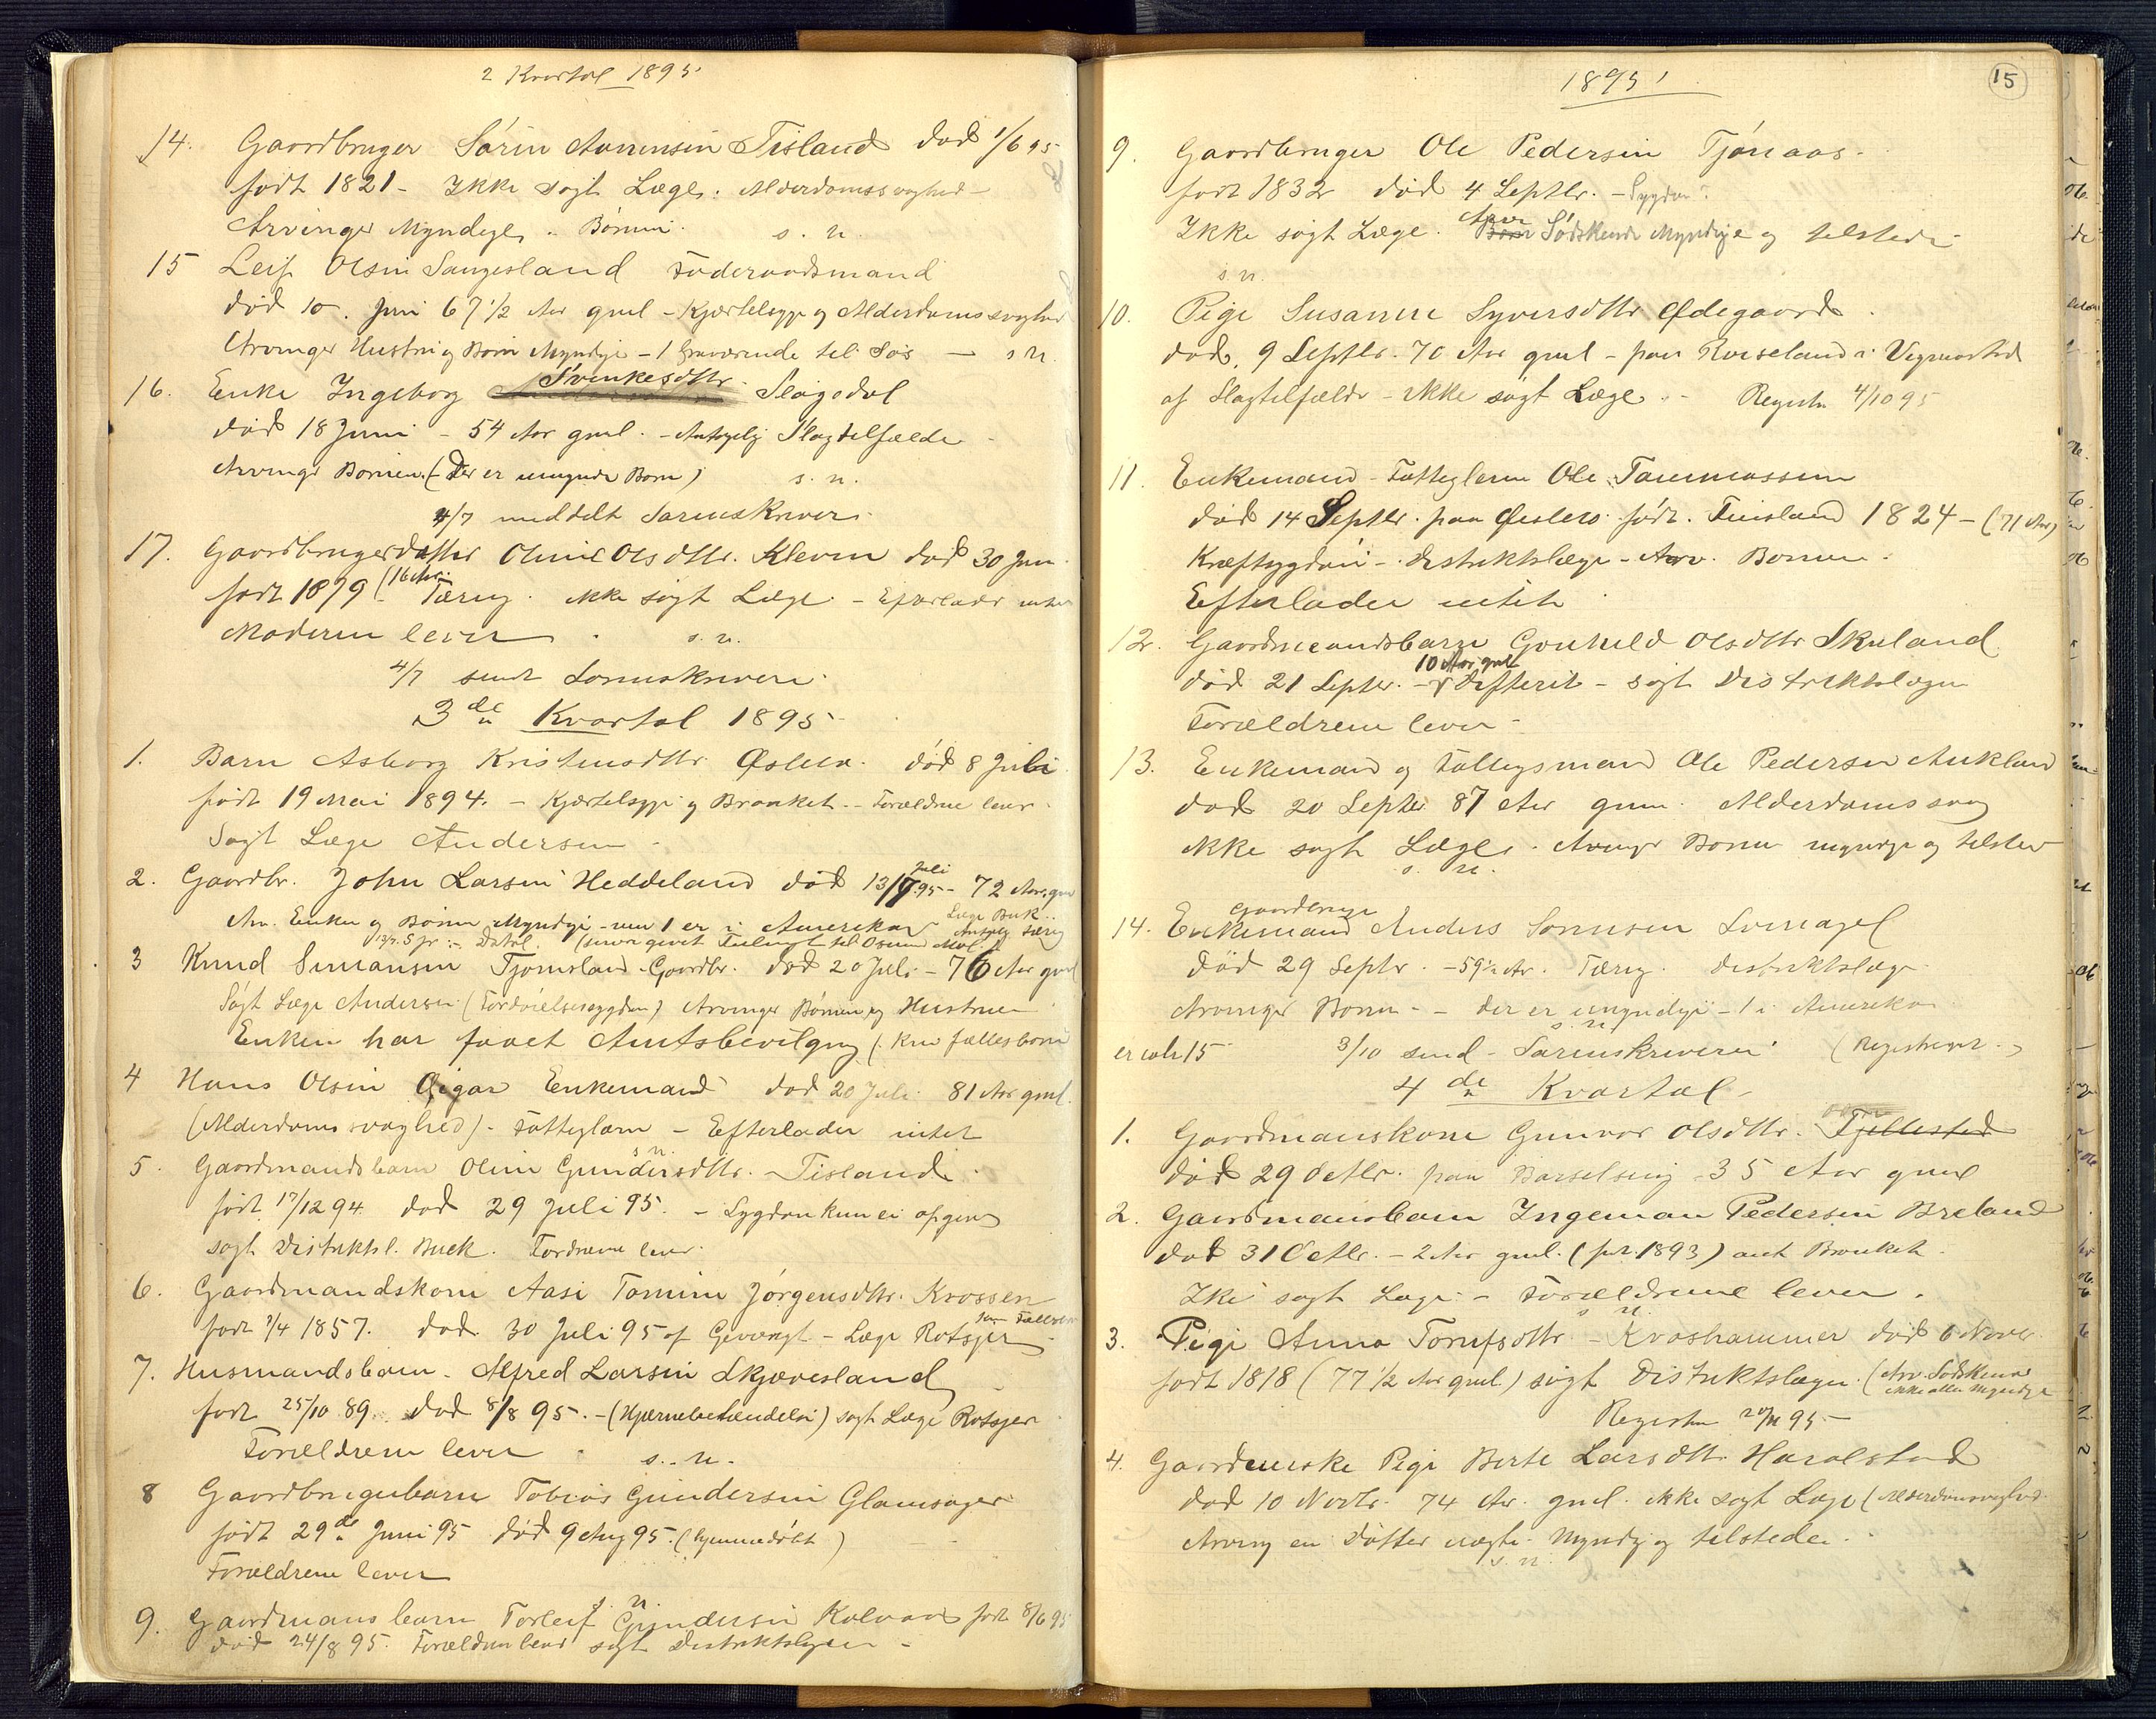 2 Kvartal 1895
14. Gaardbruger Sørin Aanensin Tisland død 1/6 95
født 1821 - Ikke søgt Læge. Alderdomssvaghed -
Arvinger Myndige. Børnin. s. n.
15 Leif Olsin Saugesland Føderaadsmand
død 10. Juni 67 1/2 Aar gml - Kjertelsyge og Alderdomssvaghed
Arvinger Hustru og Børn Myndige - 1 fraværende til Søs - s n.
16. Enke Ingeborg Svenkesdttr. Slogedal
død 18 Juni - 54 Aar gml. - Antagelig Slagtilfælde -
Arvinge Børnen. (Der er umynde Børn) s. n.
4/7 meddelt Sorenskriver.
17. Gaardbrugerdatter Oline Olsdttr. Kleven død 30 Juni.
født 1879 (16 Aar. - Tæring. ikke søgt Læge. - Efterlader intet
Moderen lever. s. n.
4/7 sendt Sorenskriveren.
3 de Kvartal 1895
1. Barn Asborg Kristensdttr Øslebø. død 8 Juli
født 19 Mai 1894. - Kjertelsyge og Bronket. - Forældrene lever.
Søgt Læge Andersen.
2. Gaardbr. John Larsen Heddeland død 13/7 95 - Juli 72 Aar gml
Arv. Enken og Børnen Myndige - men 1 er i Amerika Læge Buck. Antagelig Tæring
3 Knud Simonsen Tjomsland - Gaardbr. død 20 Juli - 76 Aar gml
Søgt Læge Andersen (Fordøielsessygdom) Arvinger Børnen og Hustruen
Enken har faaet Amtsbevilgning (Kun fællesbørn
4 Hans Olsin Øigar Enkemand død 20 Juli 81 Aar gml.
(Alderdomssvaghed) - Fattiglem - Efterlader intet
s n.
5. Gaardmandsbarn Oline Gundersdttr. - Tisland.
født 17/12 94 død 29 Juli 95. - Sygdom kun ei opgives
søgt Distriktsl. Buck. Forældrene lever.
6. Gaardmandskone Aase Tomine Jørgensdttr. Krossen
født 7/4 1857. død 30 Juli 95 af Gevængst - Læge Rotsjer
7. Husmandsbarn - Alfred Larsin Skjævesland
født 25/10 89. død 8/8 95. - (Hjernebetændelse) søgt Læge Rotsjer
Forældrene lever. s. n.
8 Gaardbrugerbarn Tobias Gundersin Glamsager
født 29 de Juni 95 død 9 Aug 95. (hjemmedøbt)
Forældrene lever
s. n.
9. Gaardmansbarn Torleif Gundersin Kolaas født 8/6 95
død 24/8 95. Forældrene lever søgt Distriktslægen -
1895
15
9. Gaardbruger Ole Pedersin Tjønaas -
født 1832 død 4 Septbr. - Sygdom?
Ikke søgt Læge. Arve Børn Sødskende Myndige og tilstede
s. n.
10. Pige Susanne Syversdttr Ødegaard.
død. 9 Septbr. 70 Aar gml - paa Roiseland i Vegusdal
af Slagtilfælde - ikke søgt Læge. - Registr 4/10 95
11. Enkemand - Fattiglem Ole Tammassen
død 14 Septbr. paa Øislebø født. Finsland 1824 - (71 Aar)
Kræftsygdom - Distriktslæge - Arv. Børnene.
Efterlader intet.
12. Gaardmandsbarn Gunhild Olsdttr Skuland
død 21 Septbr. - 10 Aar gml Difterit - søgt Distriktslægen
Forældrene lever -
13. Enkemand og Fattigsmand Ole Pedersen Aukland
død 20 Septbr 87 Aar gml. Alderdomssvag
ikke søgt Læge. Arvinger Børnen myndige og tilstede
s. n.
Gaardbruger
14. Enkemand Anders Sørensen
død 29 Septbr. - 59 1/2 Aar. Tæring. Distriktslæge
Arvinger Børnen. - der er umyndige - 1 i Amerika
s. n.
15 3/10 send - Sorenskriveren (Registreret.)
4 de Kvartal -
1. Gaardmanskone Gunvor Olsdttr. Fjellestad
død 29 Octbr. paa Barselseng 35 Aar gml
2. Gaardmansbarn Ingeman Pedersen Breland
død 31 Octbr. - 2 Aar gml. (født 1893) ant Bronket.
Ikke søgt Læge - Forældrene lever.
s n.
3. Pige Anna Tomesdttr - Kvashammer død 6 Novbr.
født 1818 (77 1/2 Aar gml) søgt Distriktslægen. (Arv. Sødskende ikke alle Myndige
Registr 20/11 95. -
4. Gaardmanske Pige Berte Larsdttr. Haraldstad
død 10 Novbr. 74 Aar. gml. ikke søgt Læge (Alderdomssvaghed.
Arving en Datter uægte. Myndig og tilstede.
s. n.